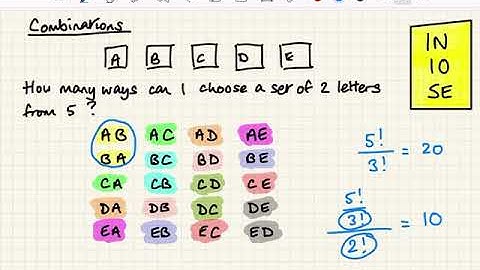 Combinations
A B C D E
How many ways can I choose a set of 2 letters
from 5 ?
AB AC AD AE
BA BC BD BE
CA CB CD CE
DA DB DC DE
EA EB EC ED
IN
10
SE
5!
3! = 20
5!
3!
2! = 10